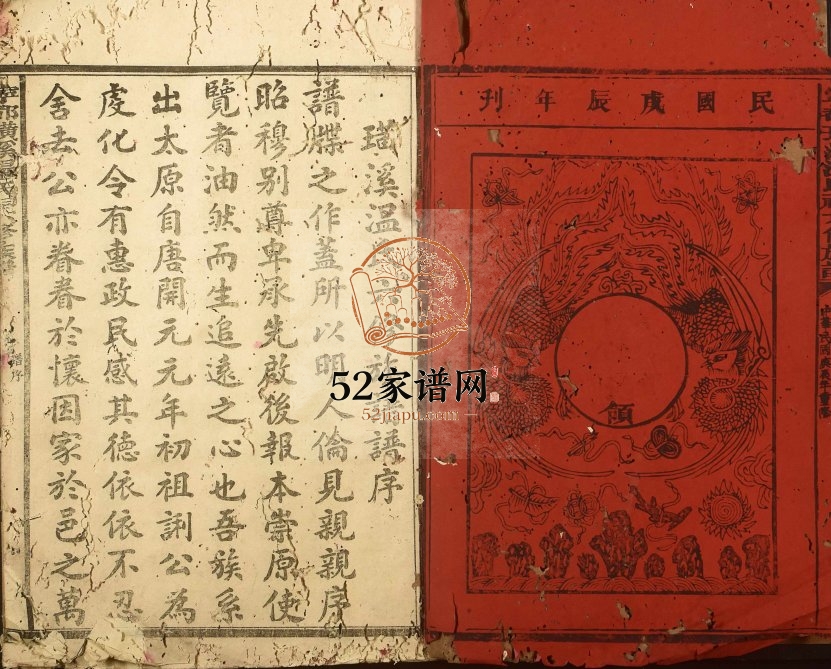 民國戊辰年刊
領
璜溪溫
譜序
譜牒之作蓋所以明人倫見親親序
昭穆別尊卑承先啟後報本崇原使
覽者油然而生追遠之心也吾族系
出太原自唐開元元年初祖詶公為
虔化令有惠政民感其德依依不忍
舍去公亦眷眷於懷因家於邑之萬
譜序
52家谱网
52jiapu.com